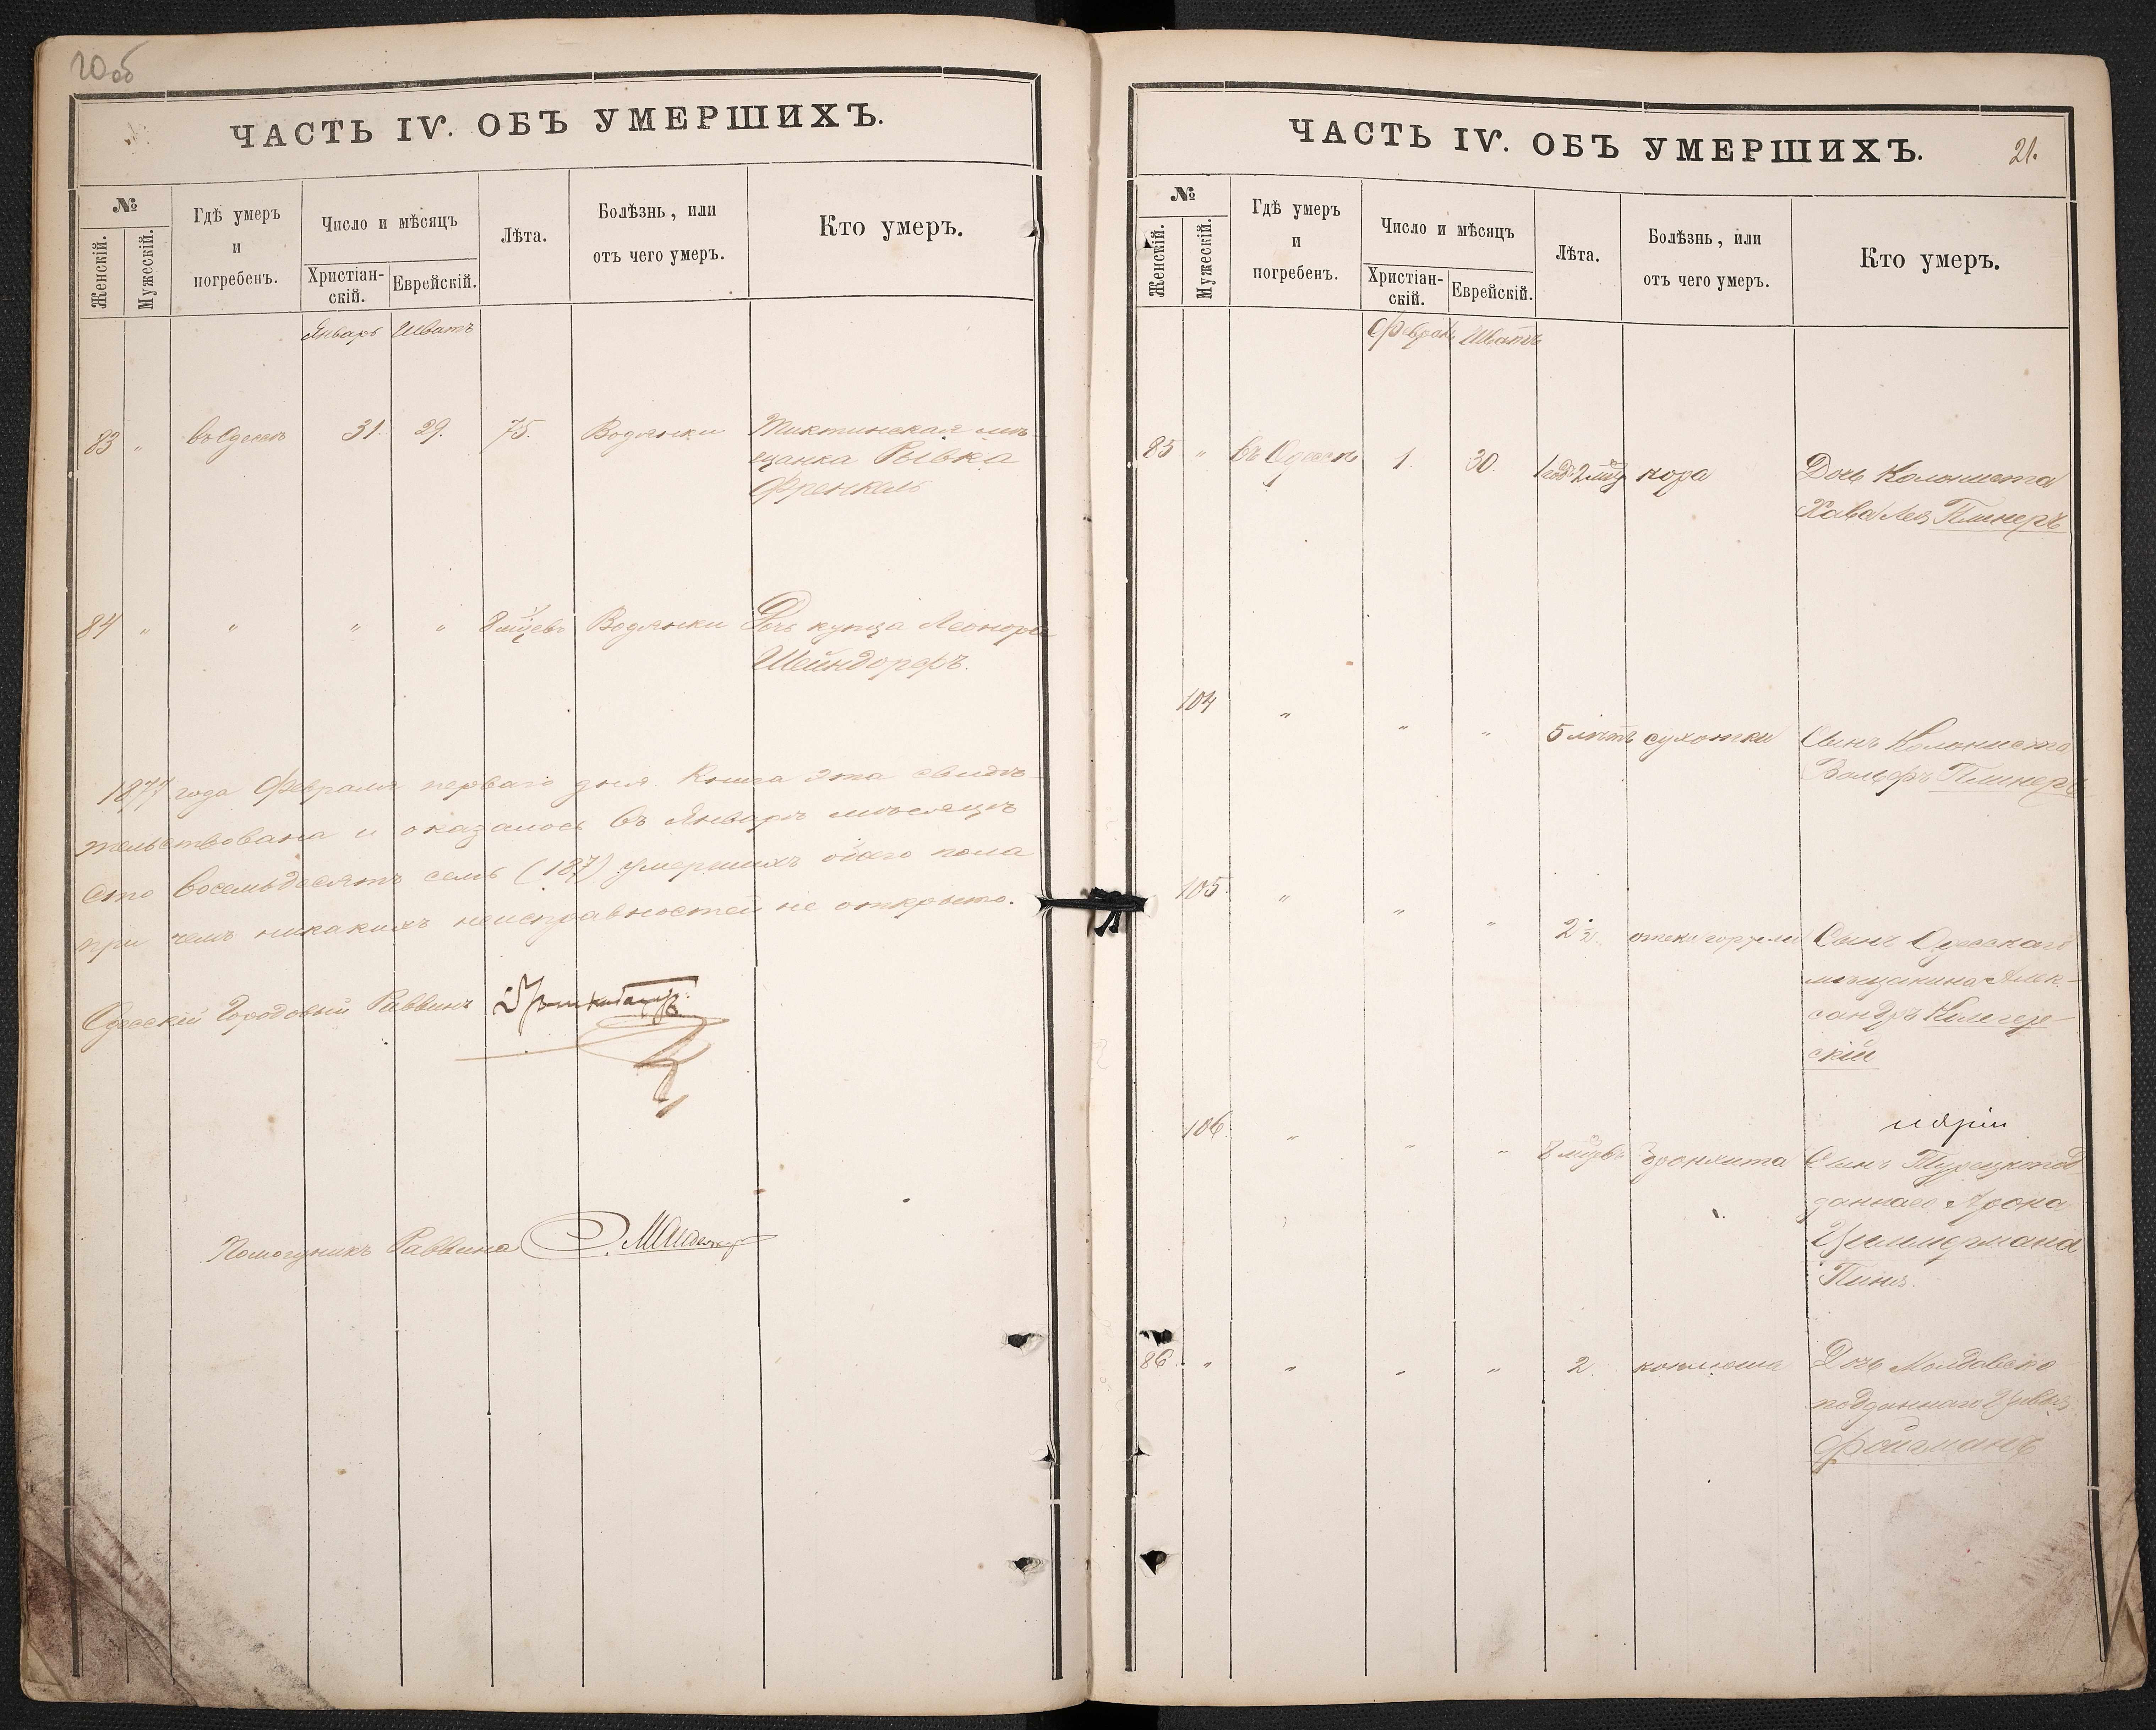 20об
ЧАСТЬ IV. ОБЪ УМЕРШИХЪ.
№
Женскій.
Мужескій.
Гдѣ умеръ
и
погребенъ.
Число и мѣсяцъ
Христіан-
скій.
Еврейскій.
Лѣта.
Болѣзнь, или
отъ чего умеръ.
Кто умеръ.
Январь Шватъ
83 " въ Одессѣ 31. 29. 75. Водянки Тиктинская мѣ-
щанка Рывка
Френкель
84 " " " " 8 м̃цевъ Водянки Дочь купца Леонора
Шейндорфъ.
1877 года Февраля перваго дня. Книга эта свидѣ-
тельствована и оказалось въ Январѣ мѣсяцѣ
Сто восемьдесятъ семь (187) умершихъ обоего пола
при чемъ никакихъ неисправностей не открыто.
Одесскій Городовый Раввинъ
Помощникъ Раввина
ЧАСТЬ IV. ОБЪ УМЕРШИХЪ.
21.
№
Женскій.
Мужескій.
Гдѣ умеръ
и
погребенъ.
Число и мѣсяцъ
Христіан-
скій.
Еврейскій.
Лѣта.
Болѣзнь, или
отъ чего умеръ.
Кто умеръ.
Феврал Шватъ
85 " въ Одессѣ 1. 30. 1 годъ 2 мц кора Дочь Колониста
Хава Лея Плинеръ
104 " " " 5 лѣтъ сухотки Сынъ Колониста
Вольфъ Плинеръ
105 " " " 2½. отека гортани Сынъ Одесскаго
мѣщанина Алек-
сандръ
скій
106 " " " 8 м̃цевъ бронхита Сынъ Турецкопод
даннаго Арона
Циммермана
Пинъ.
86. " " " " 2. коклюша Дочь Молдавско
подданнаго
Фойгманъ